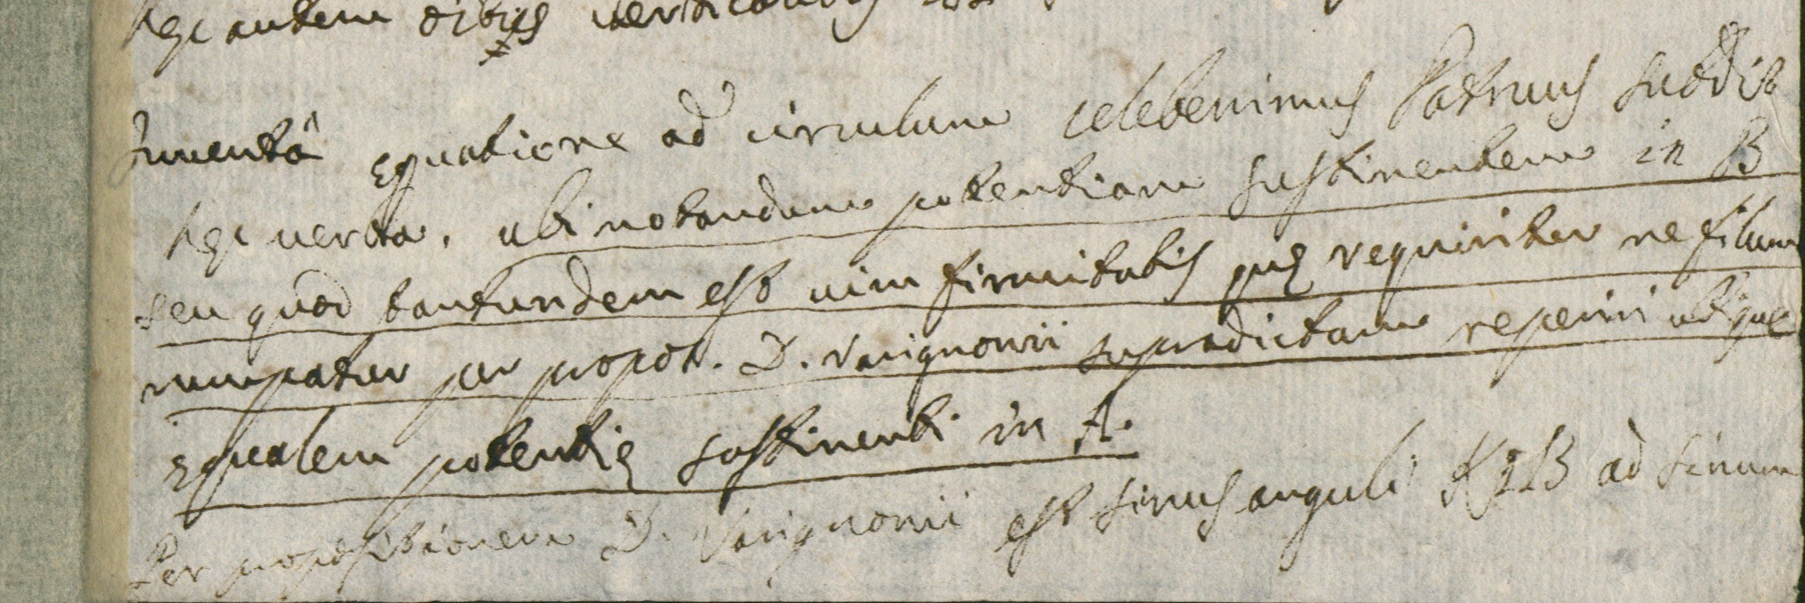 hęc autem
Inventâ Equatione ad circulum celeberrimus Patruus
hęc verba, ubi notandum potentiam sustinentem in B
seu quod tantundem est vim firmitatis quę requiritur ne filum
rumpatur per propos. D. Varignonii supradictam reperiri utique
Equalem potentię sustinenti in A.
Per propositionem D. Varignonii est sinus anguli ad sinum